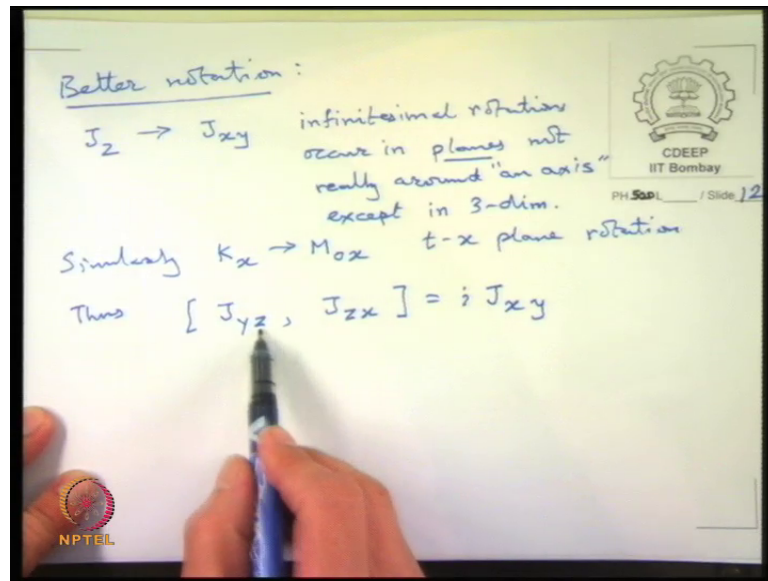 Better notation :
J_z → J_xy infinitesimal rotations
occur in planes not
really around "an axis"
except in 3-dim.
CDEEP
IIT Bombay
PH 500 L / Slide 12
Similarly K_x → M_0x t-x plane rotation
Thus [ J_yz , J_zx ] = i J_xy
NPTEL